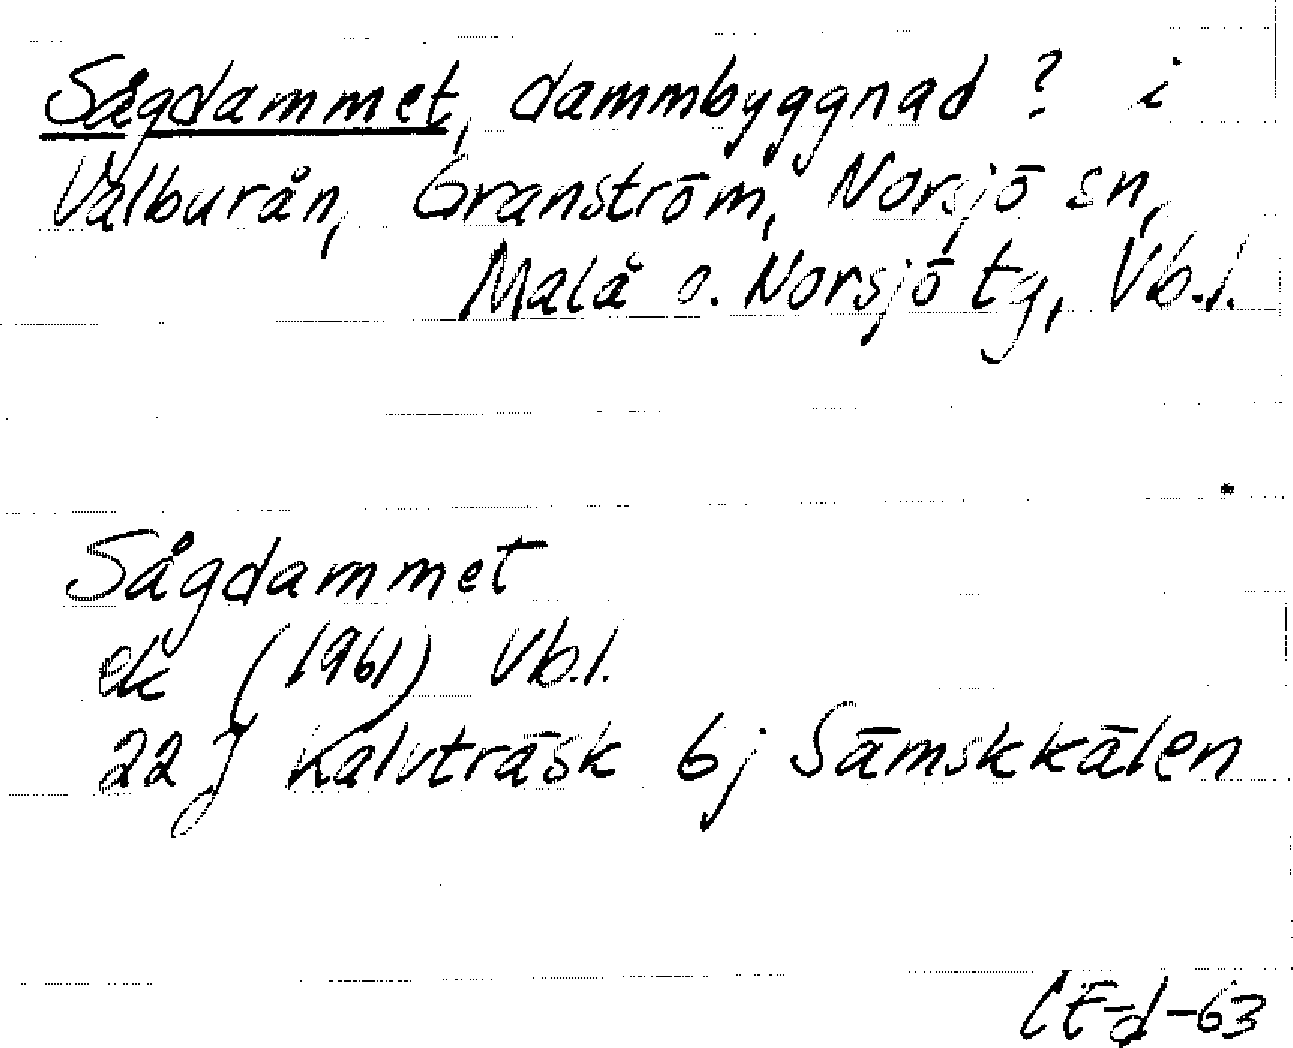 Sågdammet, dammbyggnad? i
Valburån, Granström, Norsjö sn,
Malå o. Norsjö tg, Vb.l.
Sågdammet
ek (1961) Vb.l.
22 J Kalvträsk 6j Sämskkälen
CE-d-63